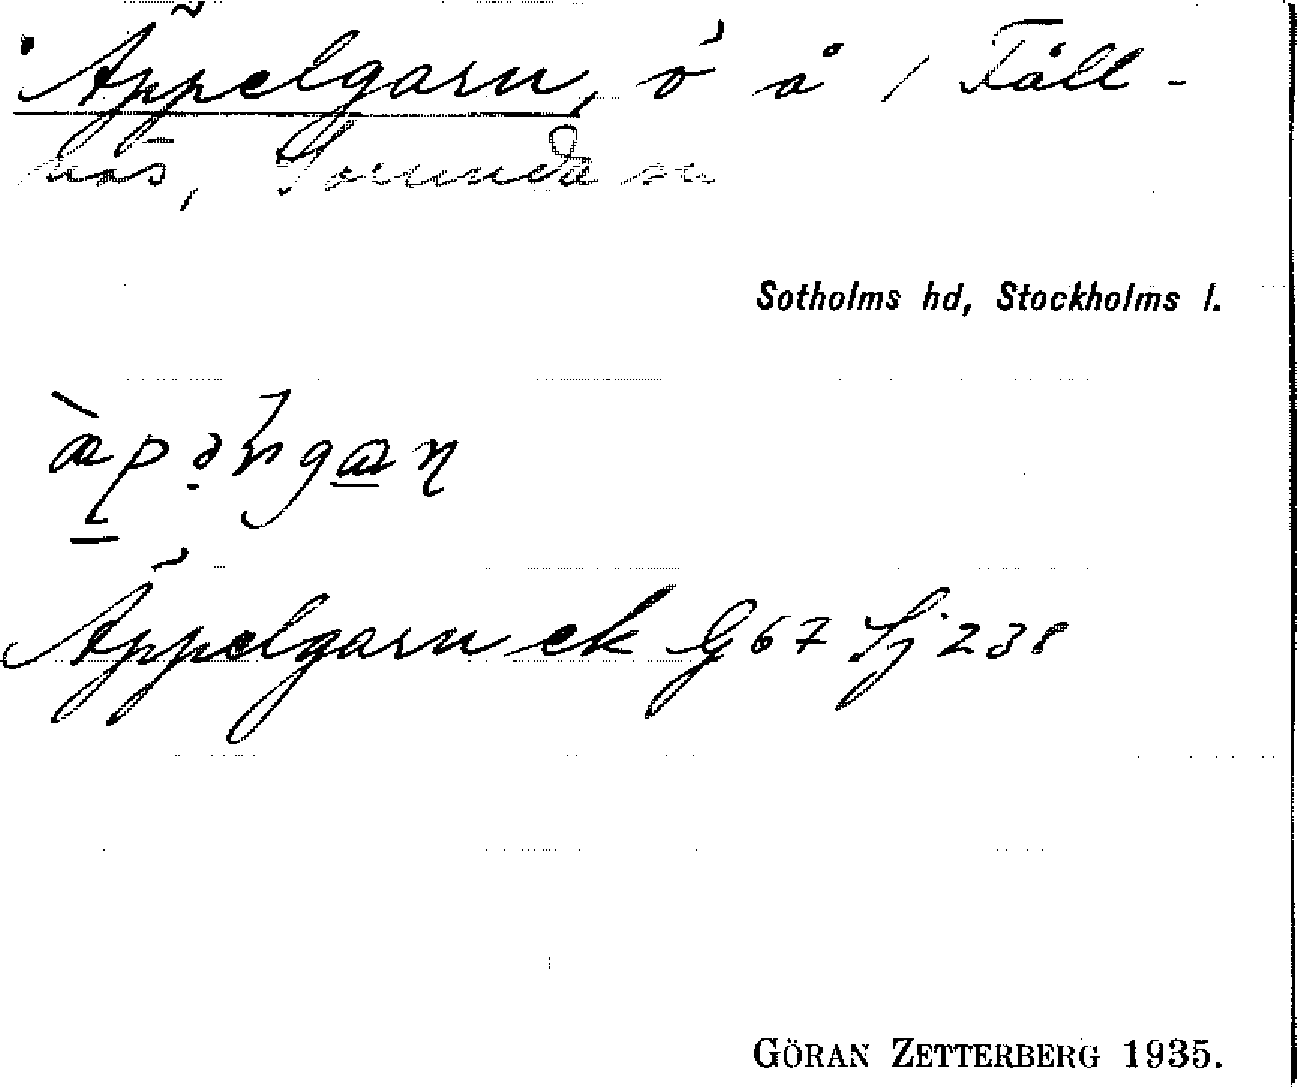 Äppelgarn, ö å / Fäll-
näs, Sorunda sn
Sotholms hd, Stockholms l.
Äppelgarn ek G67 Sj 238
GÖRAN ZETTERBERG 1935.